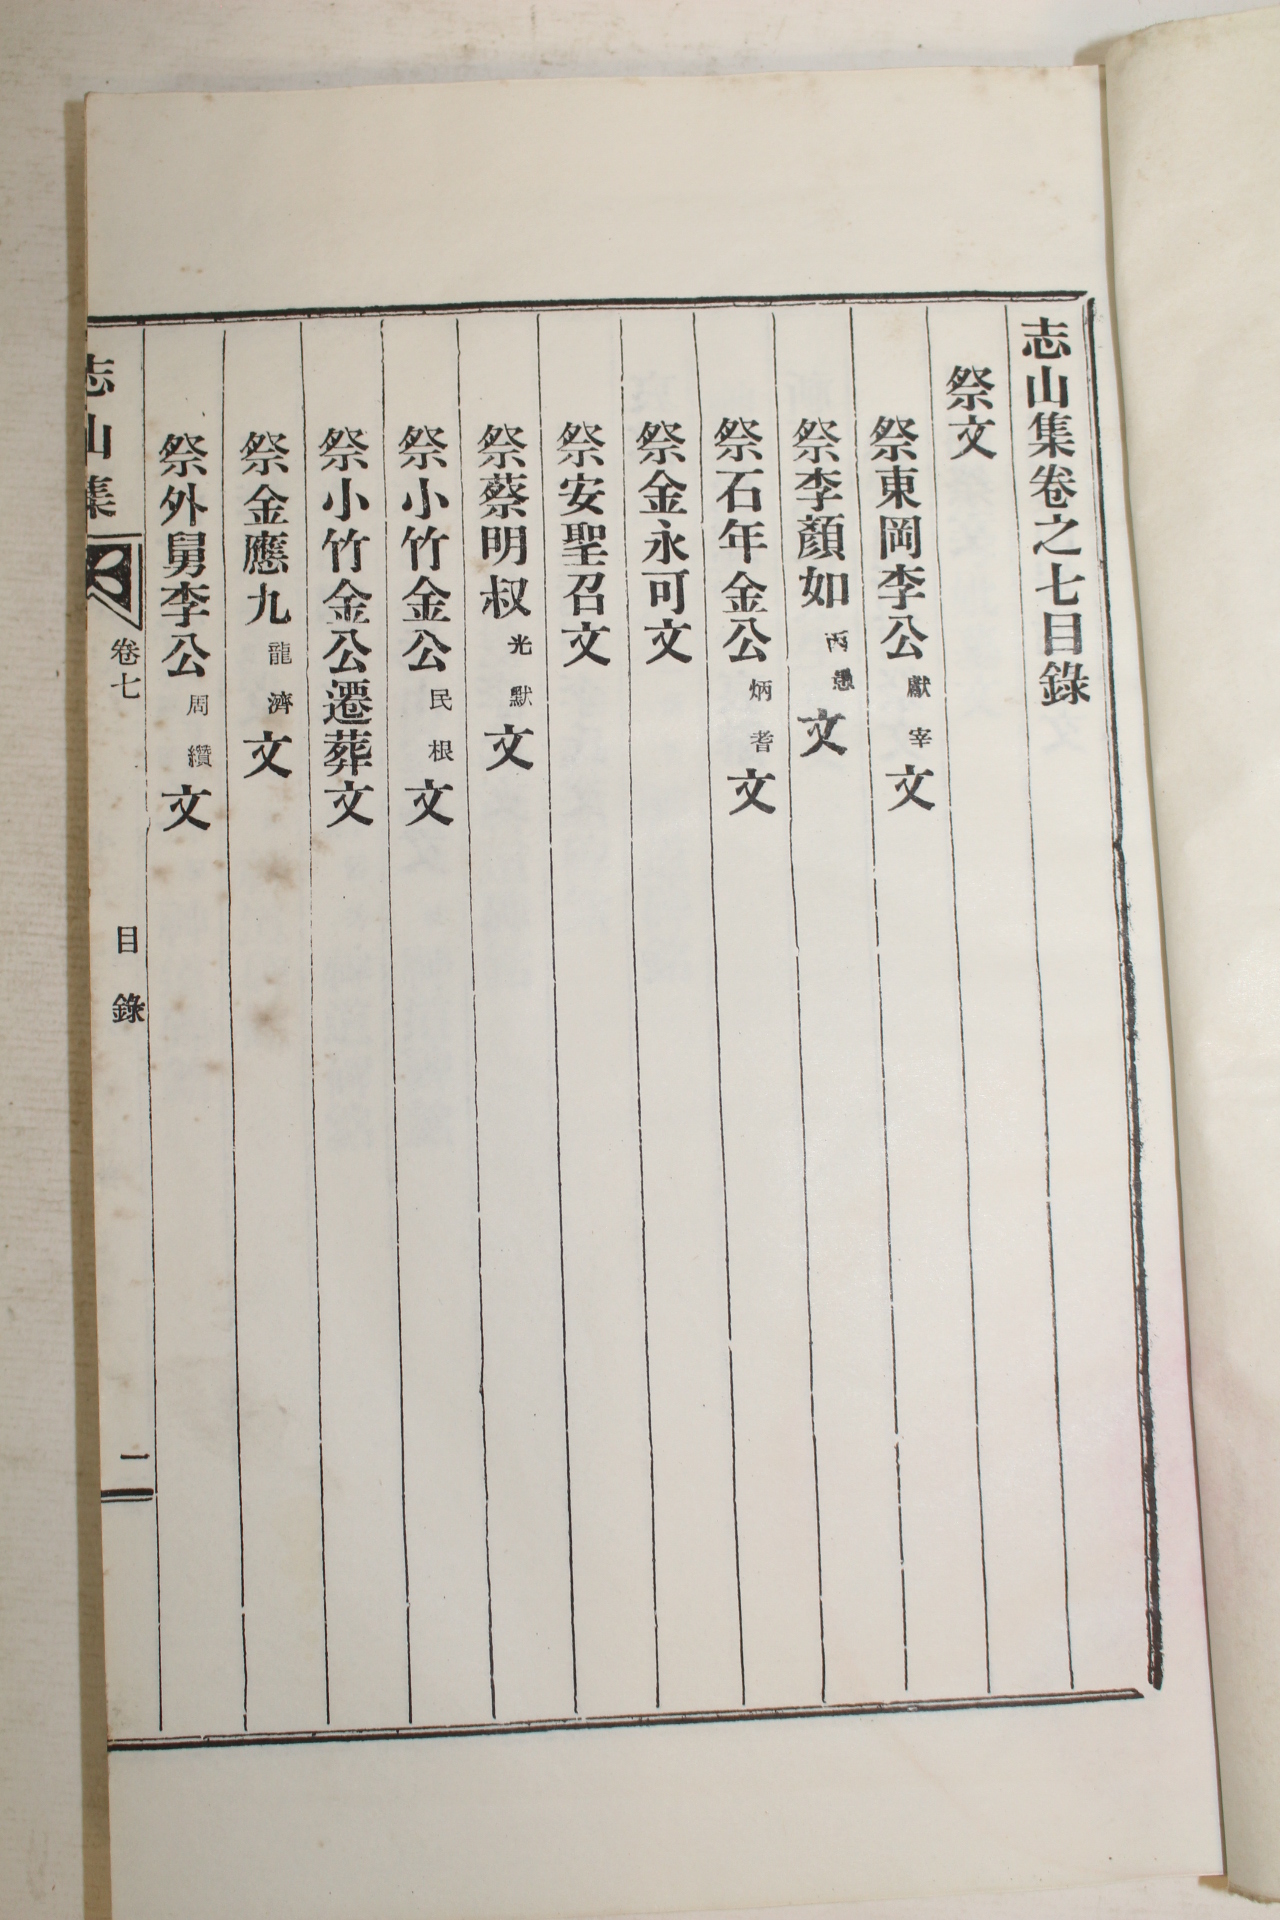 志山集卷之七目錄
祭文
祭東岡李公獻宰文
祭李顏如丙愚文
祭石年金公炳耆文
祭金永可文
祭安聖召文
祭蔡明叔光默文
祭小竹金公民根文
祭小竹金公遷葬文
祭金應九龍濟文
祭外舅李公周纘文
志山集 卷七 目錄 一